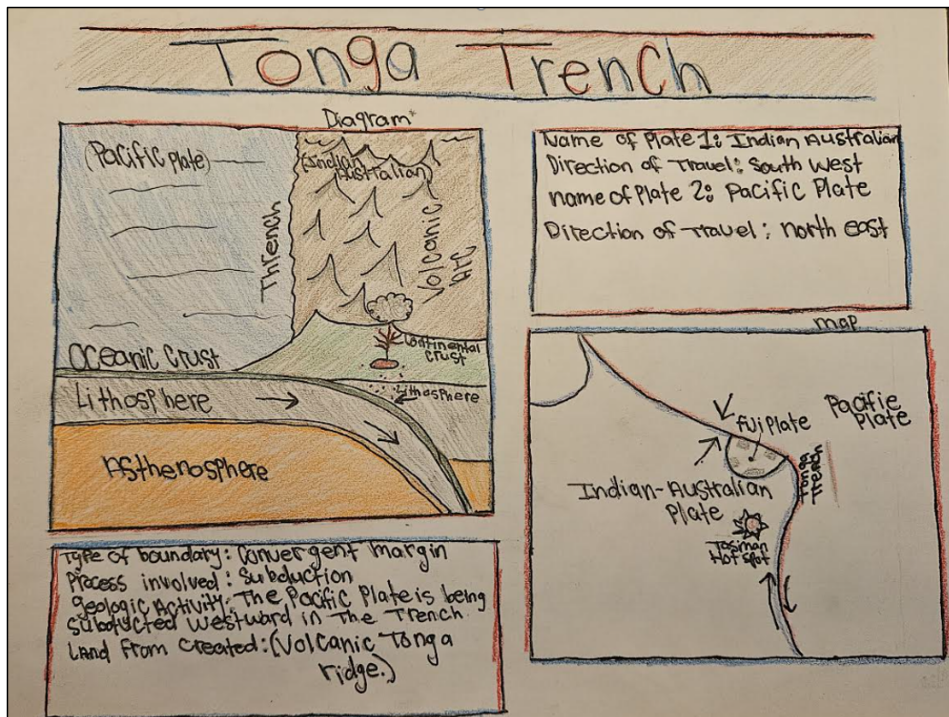 Tonga Trench
Diagram*
(Pacific Plate)
(Indian
Australian)
Thrench
Volcanic
Arc
Oceanic Crust
Continental
Crust
Lithosphere
Lithosphere
Asthenosphere
Type of boundary: Convergent margin
Process involved: Subduction
Geologic Activity: The Pacific Plate is being
subducted westward in The Trench
Land from created: (Volcanic Tonga
ridge.)
Name of Plate 1: Indian Australian
Direction of Travel: South West
name of Plate 2: Pacific Plate
Direction of Travel: north east
map
Fuji plate
Pacific
Plate
Tonga
Trench
Indian-Australian
Plate
Tasman
Hot spot